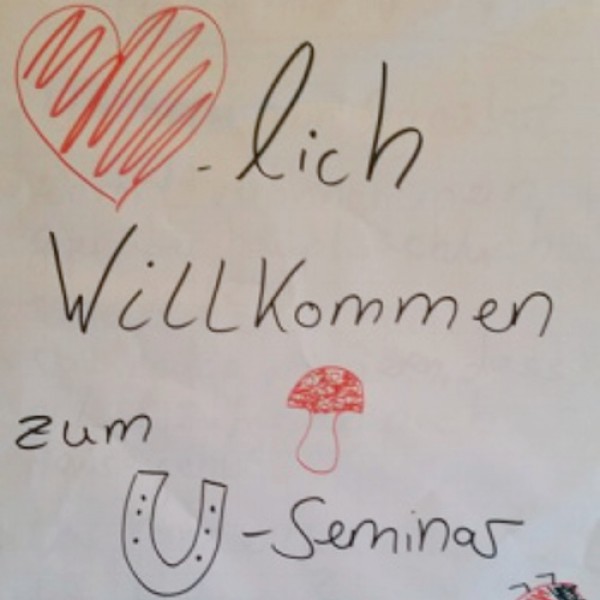 -lich
Willkommen
zum
-Seminar